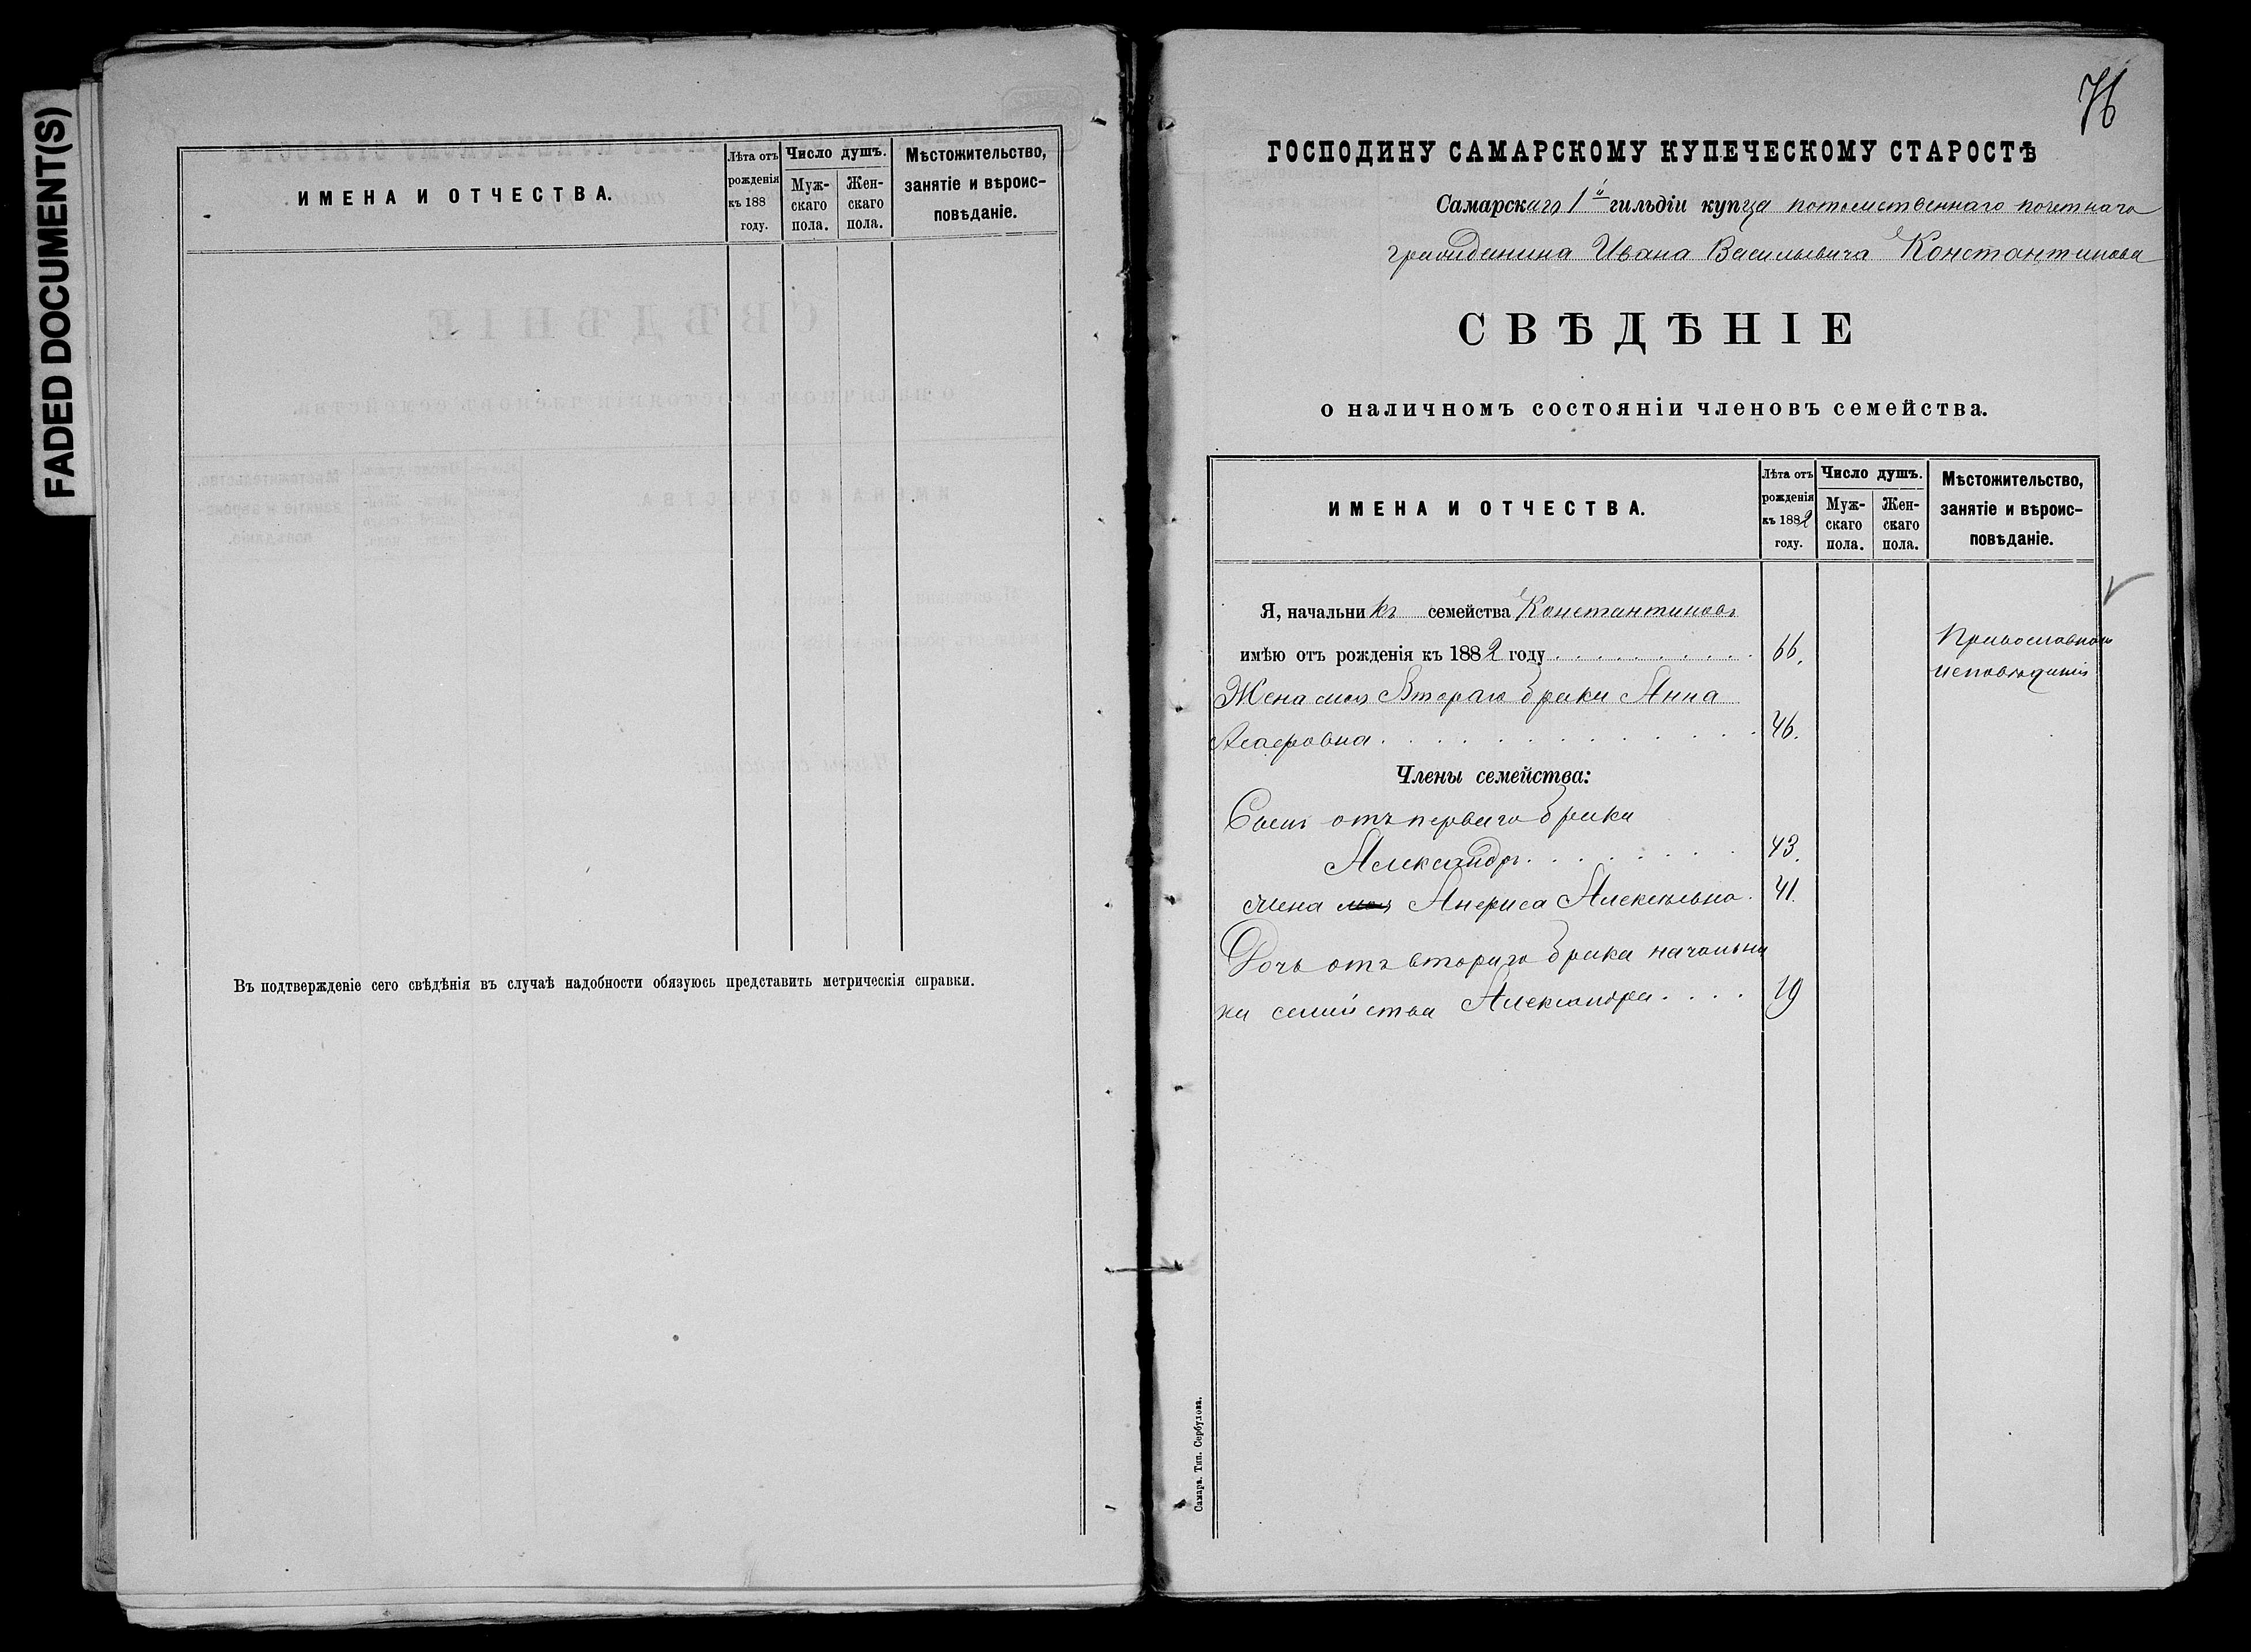 FADED DOCUMENT(S)
ИМЕНА И ОТЧЕСТВА.
Лѣта отъ рожденія къ 188 году.
Число душъ.
Мужскаго пола.
Женскаго пола.
Мѣстожительство, занятіе и вѣроисповѣданіе.
Въ подтвержденіе сего свѣдѣнія въ случаѣ надобности обязуюсь представить метрическія справки.
76
ГОСПОДИНУ САМАРСКОМУ КУПЕЧЕСКОМУ СТАРОСТѢ
Самарскаго 1й гильдіи купца потомственнаго почетнаго
гражданина Ивана Васильевича Константинова
СВѢДѢНІЕ
о наличномъ состояніи членовъ семейства.
ИМЕНА И ОТЧЕСТВА.
Лѣта отъ рожденія къ 1882 году.
Число душъ.
Мужскаго пола.
Женскаго пола.
Мѣстожительство, занятіе и вѣроисповѣданіе.
Я, начальникъ семейства Константиновъ
имѣю отъ рожденія къ 1882 году . . . . . . . . . . 66.
Православнаго
исповѣданія
Жена моя Втораго брака Анна
. . . . . . . . . . . . . . 46.
Члены семейства:
Сынъ отъ перваго брака
Александръ . . . . . . . 43.
жена моя Анфиса Алексѣевна . 41.
Дочь отъ втораго брака начальни
ка семейства Александра . . . . 19
Самара. Тип. Сербулова.